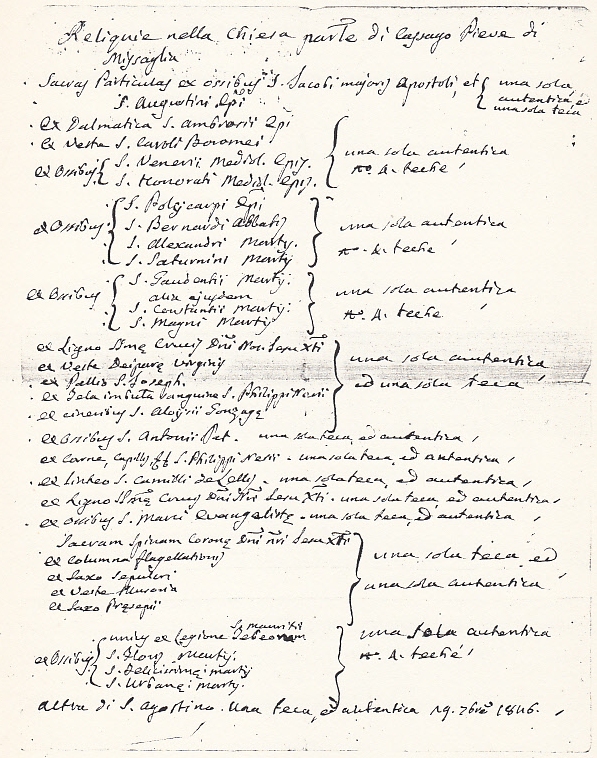 Reliquie nella Chiesa parte di Cassago Pieve di
Missaglia
Sacras Particulas ex ossibus S. Jacobi majoris Apostoli, et una sola
S. Augustini Epi autentica, e
una sola teca
ex Dalmatica S. Ambrosii Epi
ex Veste S. Caroli Boromei
ex Ossibus S. Venerii Mediol. Epis. una sola autentica
S. Honorati Mediol. Epis. nº 4. teche
ex Ossibus S. Polycarpi Epi
S. Bernardi Abbatis una sola autentica
S. Alexandri Marty. nº 4. teche
S. Saturnini Marty
ex Ossibus S. Gaudentii Marty.
alia ejusdem una sola autentica
S. Constantii Marty. nº 4. teche
S. Magni Marty
ex Ligno SSmę Crucis Dñi Nri Jesu Xti
ex Veste Deiparę Virginis una sola autentica
ex Pallio S. Joseph. ed una sola teca
ex Tela imbuta sanguine S. Philippi Nerii
ex cineribus S. Aloysii Gonzagę
ex Ossibus S. Antonii Pat. una sola teca, ed autentica
ex Carne, Capillis S. Philippi Nerii - una sola teca, ed autentica
ex Linteo S. Camilli de Lellis - una sola teca, ed autentica
ex Ligno SSmę Crucis Dñi Nri Jesu Xti - una sola teca, ed autentica
ex Ossibus S. Marci Evangelistę - una sola teca, ed autentica
Sacram Spinam Coronę Dñi Nri Jesu Xti
ex Columna flagellationis una sola teca, ed
ex Saxo Sepulcri una sola autentica
ex Veste
ex Saxo Pręsepii
S. Mauritii
ex Ossibus unius ex Legione Tebeorum una sola autentica
S. Marty. nº 4. teche
S. Marty
S. Marty.
altra di S. Agostino. Una teca, ed autentica 19. 7bre 1846.